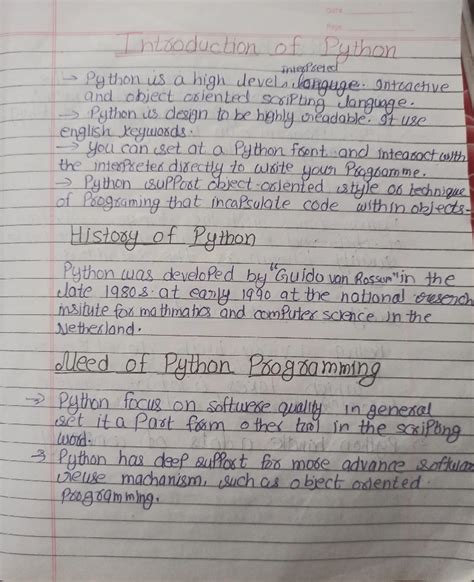 Date
Page
Introduction of Python
interpreted
→ Python is a high level, languge. Intractive
and object oriented scripting language.
→ Python is design to be highly readable. It use
english keywords.
→ You can set at a Python front and intearact with
the interpreter directly to write your Programme.
→ Python support object-oriented style or technique
of Programing that incapsulate code within objects.
History of Python
Python was developed by "Guido van Rossum" in the
late 1980s at early 1990 at the national
insitute for mathmatics and computer science in the
Netherland.
Need of Python Programming
→ Python focus on software quality in general
set it a Part form other tool in the scripting
word.
→ Python has deep support for more advance software
reuse machanism, such as object oriented
Programming.